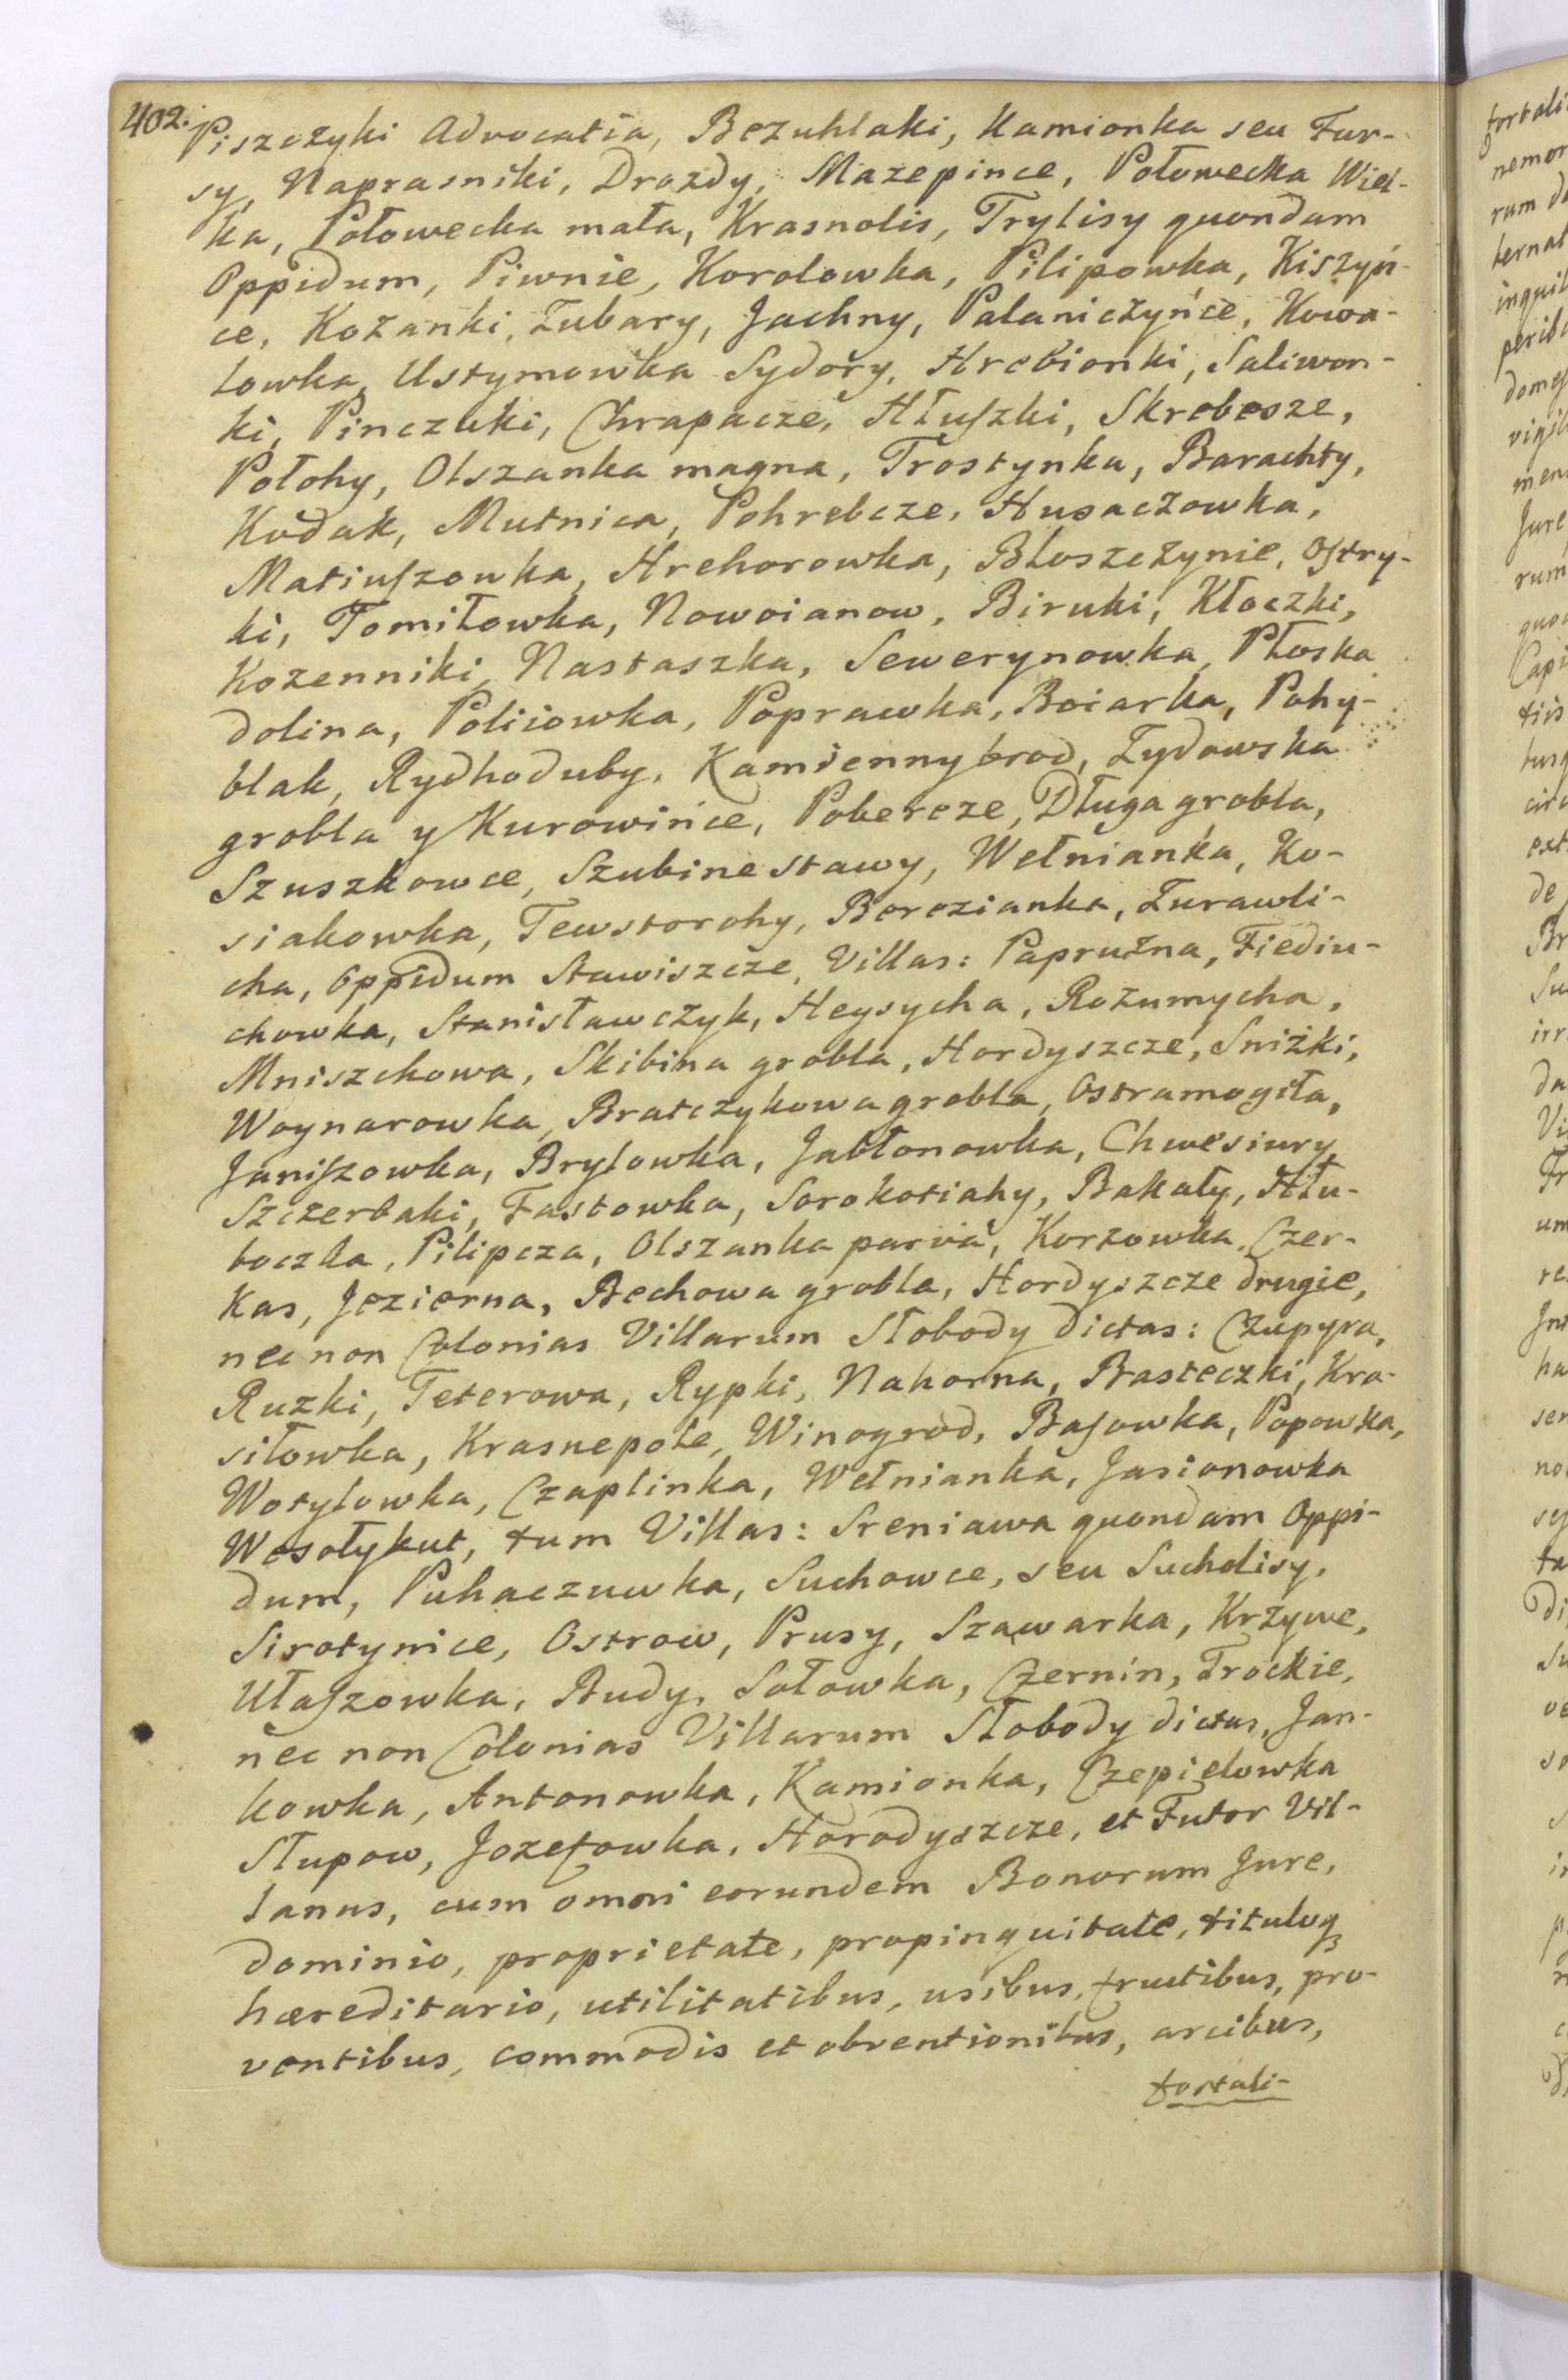 402.
Piszczyki Advocatia, Bezuhlaki, Kamionka seu Fur-
sy, Naprasniki, Drozdy, Mazepince, Połowecka Wiel-
ka, Połowecka mała, Krasnolis, Trylisy quondam
Oppidum, Piwnie, Korolowka, Pilipowka, Kiszyń-
ce, Kożanki, Żubary, Jachny, Palaniczyńce, Kowa-
lowka, Ustymowka Sydory, Hrebionki, Saliwon-
ki, Pinczuki, Chrapacze, Hłuszki, Skrebesze,
Połohy, Olszanka magna, Trostynka, Barachty,
Kodak, Mutnica, Pohrebcze, Husaczowka,
Matiuszowka, Hrehorowka, Błoszczynie, Ostry-
ki, Tomiłowka, Nowoianow, Biruki, Kłoczki,
Kozenniki, Nastaszka, Sewerynowka, Płoska
dolina, Policowka, Poprawka, Boiarka, Pohy-
blak, Rydhoduby, Kamienny brod, Żydowska
grobla y Kurowińce, Pobereze, Długa grobla,
Szuszkowce, Szubine stawy, Wełnianka, Ko-
siakowka, Tewstorohy, Berezianka, Żurawli-
cha, Oppidum Stawiszcze, Villas: Paprużna, Fiediu-
chowka, Stanisławczyk, Heysycha, Rozumycha,
Mniszchowa, Skibina grobla, Hordyszcze, Sniżki,
Woynarowka, Bratczykowa grobla, Ostramogiła,
Janiszowka, Brylowka, Jabłonowka, Chwesiury
Szczerbaki, Fastowka, Sorokotiahy, Bakały, Hłu-
boczka, Pilipcza, Olszanka parva, Korzowka, Czer-
kas, Jezierna, Bechowa grobla, Hordyszcze drugie,
nec non Colonias Villarum Słobody dictas: Czupyra,
Ruzki, Teterowa, Rypki, Nahorna, Brasteczki, Kra-
siłowka, Krasnepole, Winogrod, Basowka, Popowka,
Wotylowka, Czaplinka, Wełnianka, Jasionowka
Wesołykut, tum Villas: Sreniawa quondam Oppi-
dum, Puhaczuwka, Suchowce, seu Sucholisy,
Sirotynice, Ostrow, Prusy, Szawarka, Krzywe,
Ułaszowka, Budy, Sołowka, Czernin, Trockie,
nec non Colonias Villarum Słobody dictas, Jan-
kowka, Antonowka, Kamionka, Czepielowka
Słupow, Jozefowka, Horodyszcze, et Futor Vil-
lanus, cum omni eorundem Bonorum Jure,
dominio, proprietate, propinquitate, tituloq
hæreditario, utilitatibus, usibus, fructibus, pro-
ventibus, commodis et obventionibus, arcibus,
fortali-